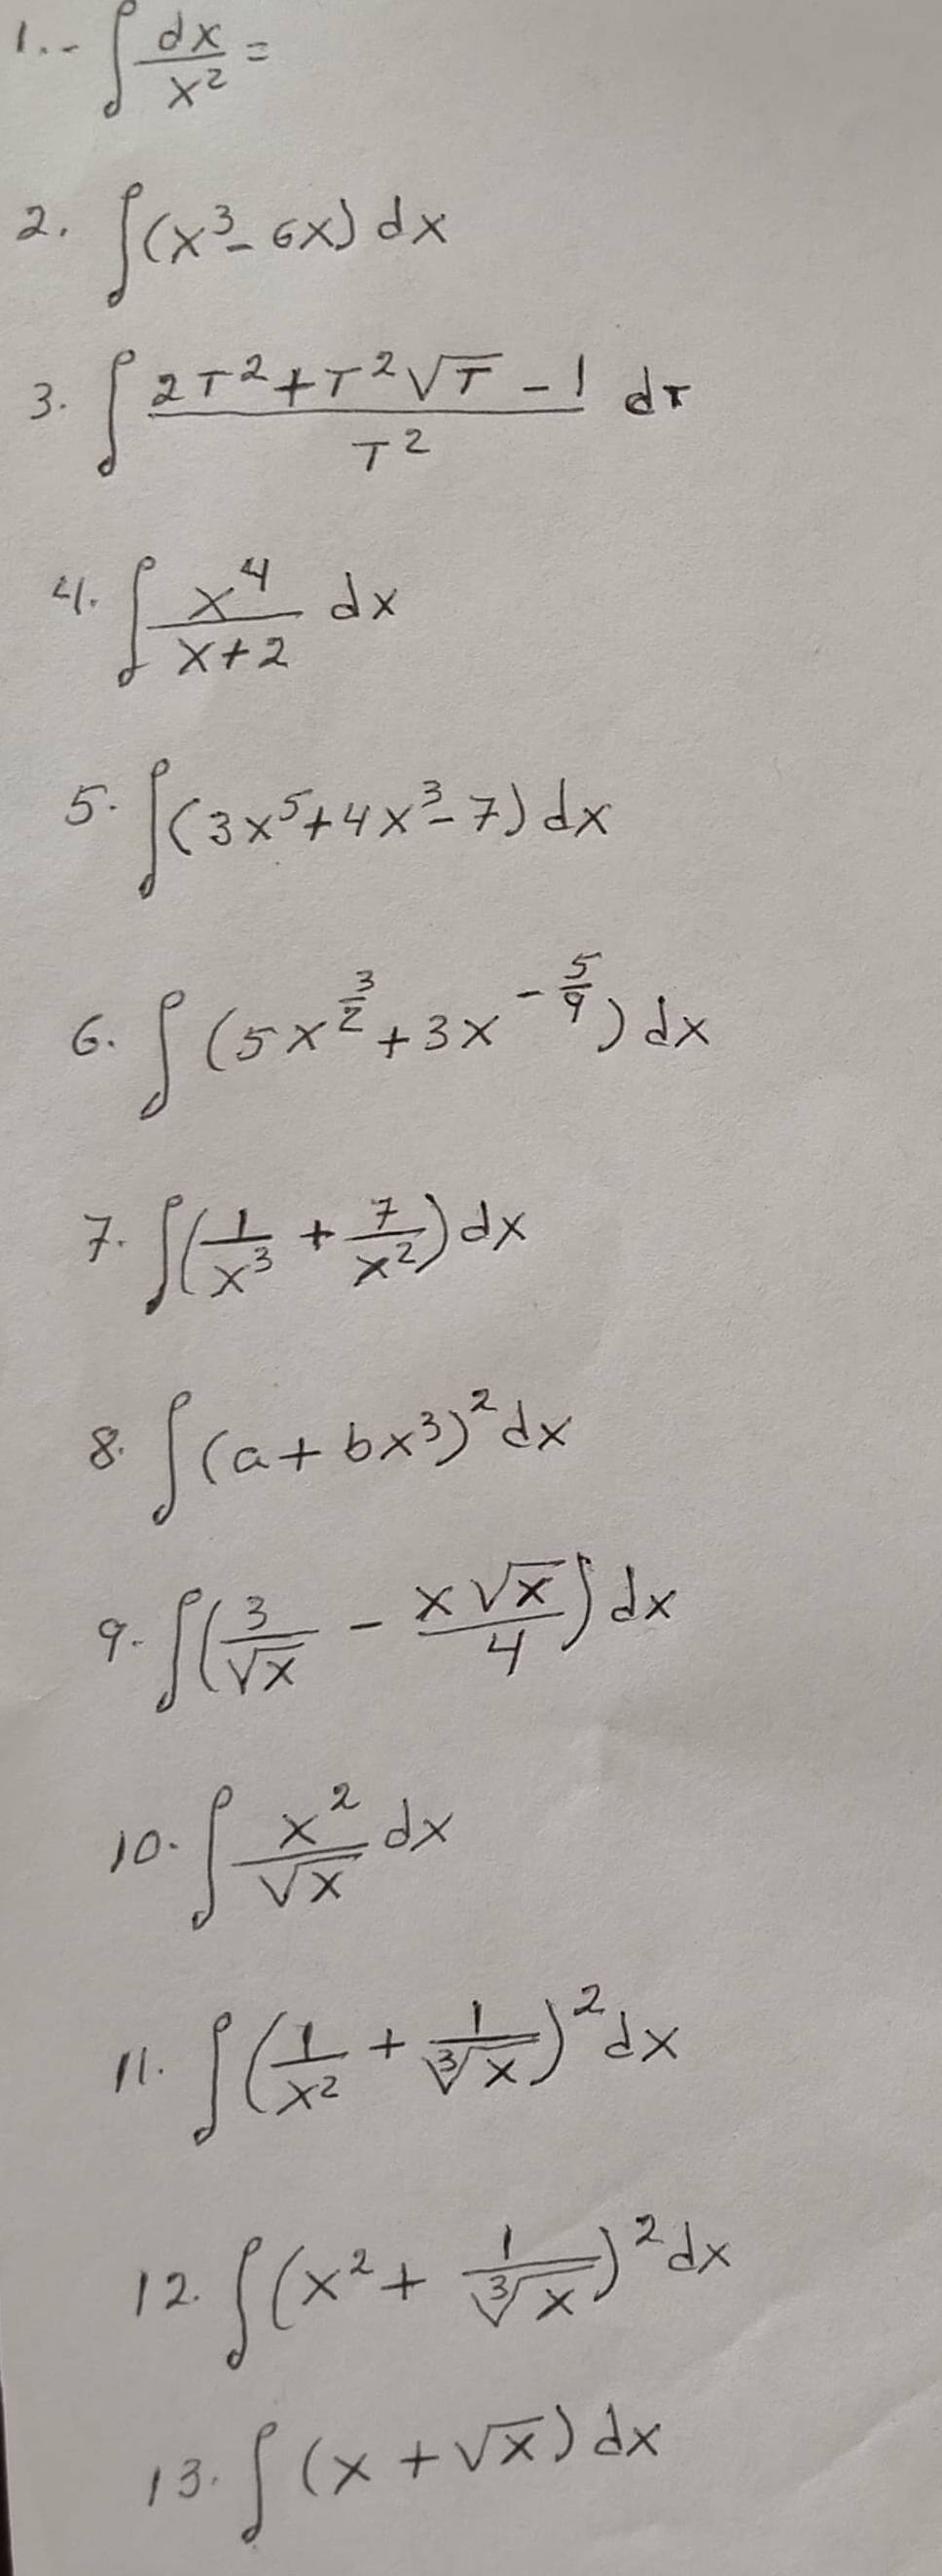 1.- ∫ dx/x² =
2. ∫(x³ - 6x) dx
3. ∫ (2T² + T²√T - 1)/T² dT
4. ∫ x⁴/(x+2) dx
5. ∫(3x⁵ + 4x³ - 7) dx
6. ∫(5x^(3/2) + 3x^(-5/9)) dx
7. ∫(1/x³ + 7/x²) dx
8. ∫(a + bx³)² dx
9. ∫(3/√x - x√x/4) dx
10. ∫ x²/√x dx
11. ∫(1/x² + 1/∛x)² dx
12. ∫(x² + 1/∛x)² dx
13. ∫(x + √x) dx